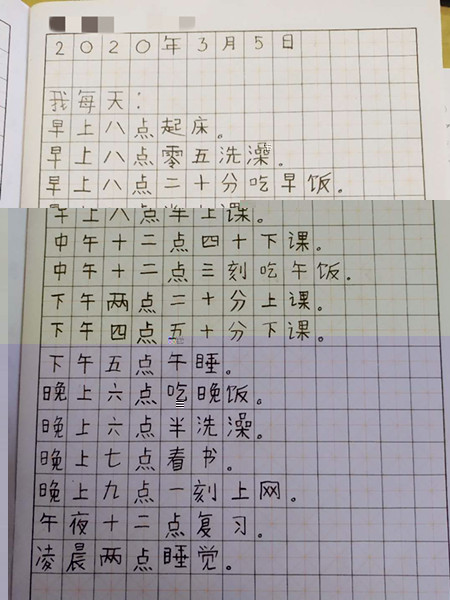 2020年3月5日
我每天：
早上八点起床。
早上八点零五洗澡。
早上八点二十分吃早饭。
早上八点半上课。
中午十二点四十下课。
中午十二点三刻吃午饭。
下午两点二十分上课。
下午四点五十分下课。
下午五点午睡。
晚上六点吃晚饭。
晚上六点半洗澡。
晚上七点看书。
晚上九点一刻上网。
午夜十二点复习。
凌晨两点睡觉。